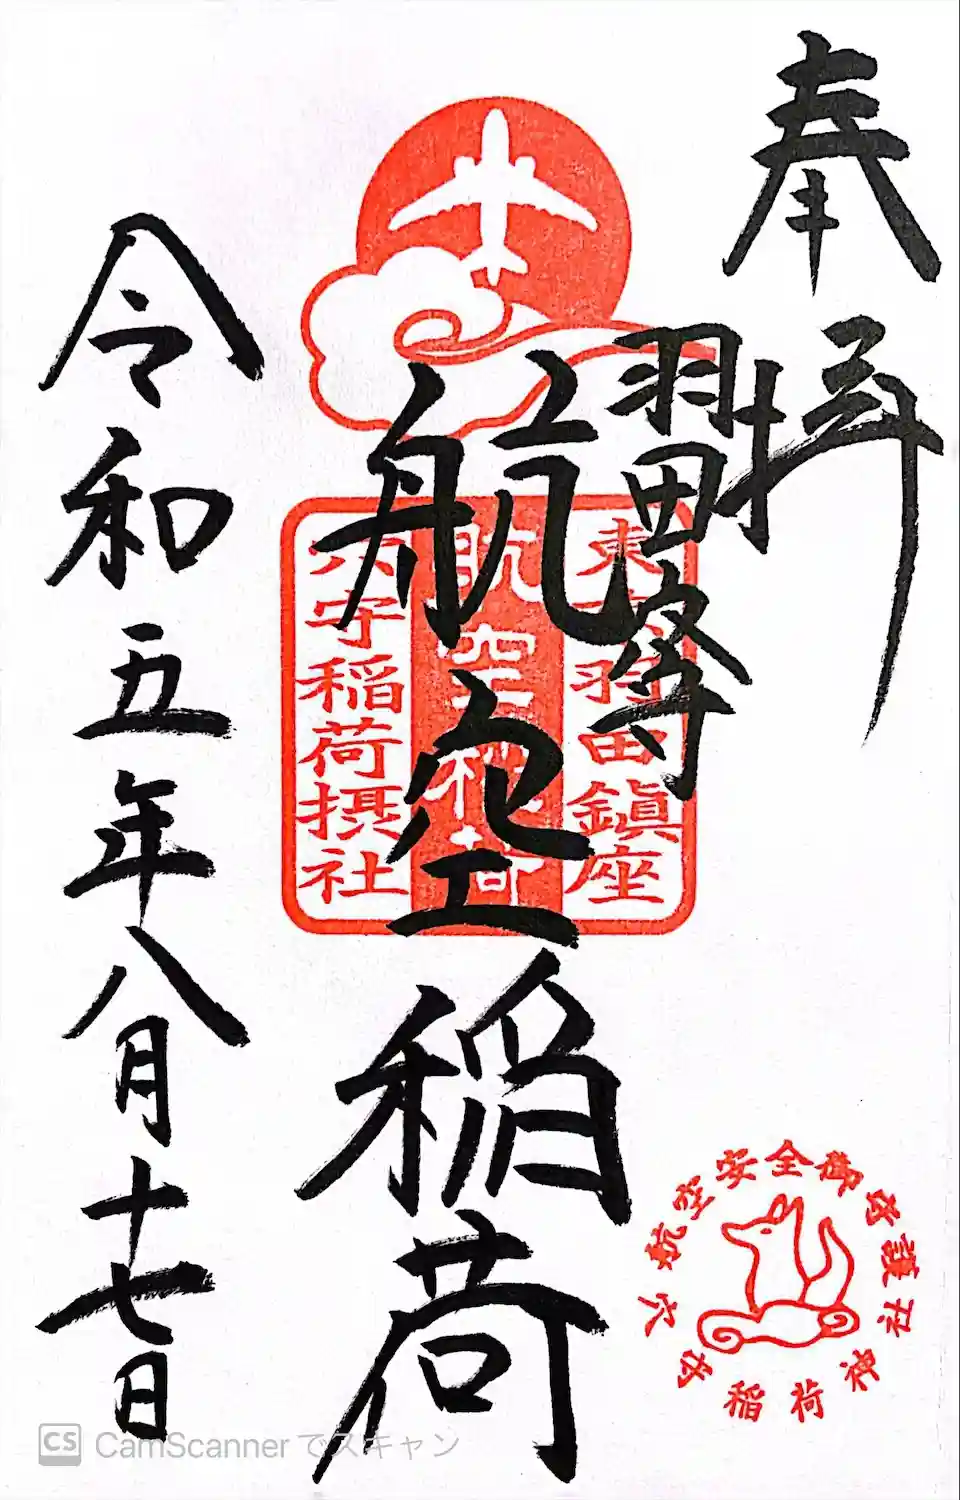 奉拝
羽田
航空稲荷
令和五年八月十七日
東京羽田鎮座
航空稲荷
穴守稲荷摂社
航空安全御守護
穴守稲荷神社
CS CamScannerでスキャン